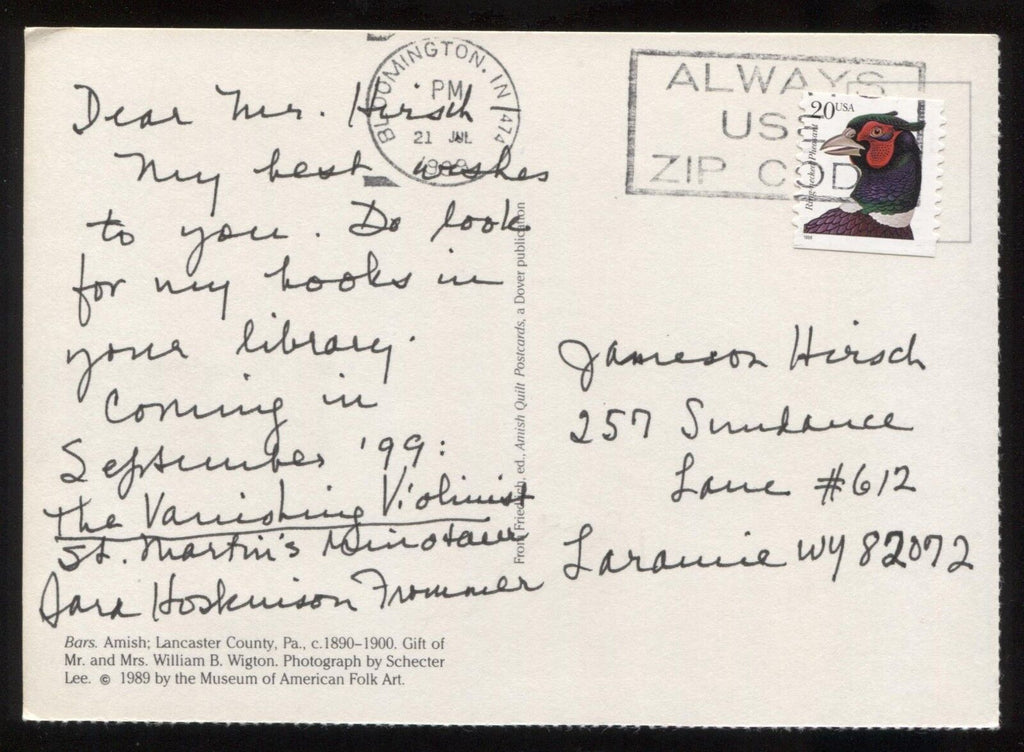 Dear Mr. Hirsch
My best wishes
to you. Do look
for my books in
your library.
Coming in
September '99:
The Vanishing Violinist
St. Martin's Minotaur
Sara Hoskinson Frommer
Bars. Amish; Lancaster County, Pa., c.1890–1900. Gift of
Mr. and Mrs. William B. Wigton. Photograph by Schecter
Lee. © 1989 by the Museum of American Folk Art.
From Friedrich, ed., Amish Quilt Postcards, a Dover publication
BLOOMINGTON, IN 474
PM
21 JUL
ALWAYS
USE
ZIP CODE
20 USA
Ring-necked Pheasant
Jameson Hirsch
257 Sundance
Lane #612
Laramie WY 82072